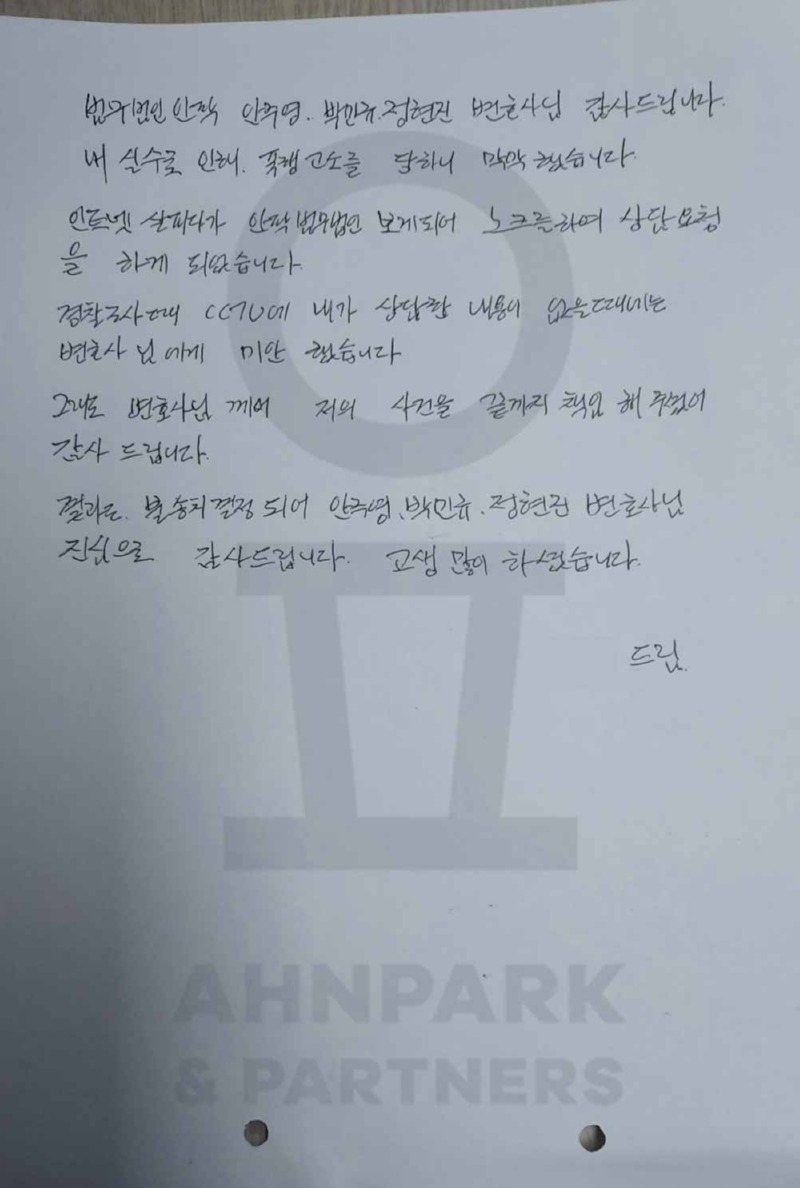 법무법인 안팍 안주영. 박민규. 정현진 변호사님 감사드립니다.
내 실수로 인해. 폭행고소를 당하니 막막했습니다.
인터넷 살피다가 안팍법무법인 보게되어 노크를하여 상담요청
을 하게 되었습니다.
경찰조사때 CCTV에 내가 상담한 내용이 없을때에는
변호사님에게 미안 했습니다
그래도 변호사님 께서 저의 사건을 끝까지 책임 해 주셨어
감사 드립니다.
결과는. 불송치결정 되어 안주영, 박민규. 정현진 변호사님
진심으로 감사드립니다. 고생 많이 하셨습니다.
드림.
AHNPARK
& PARTNERS